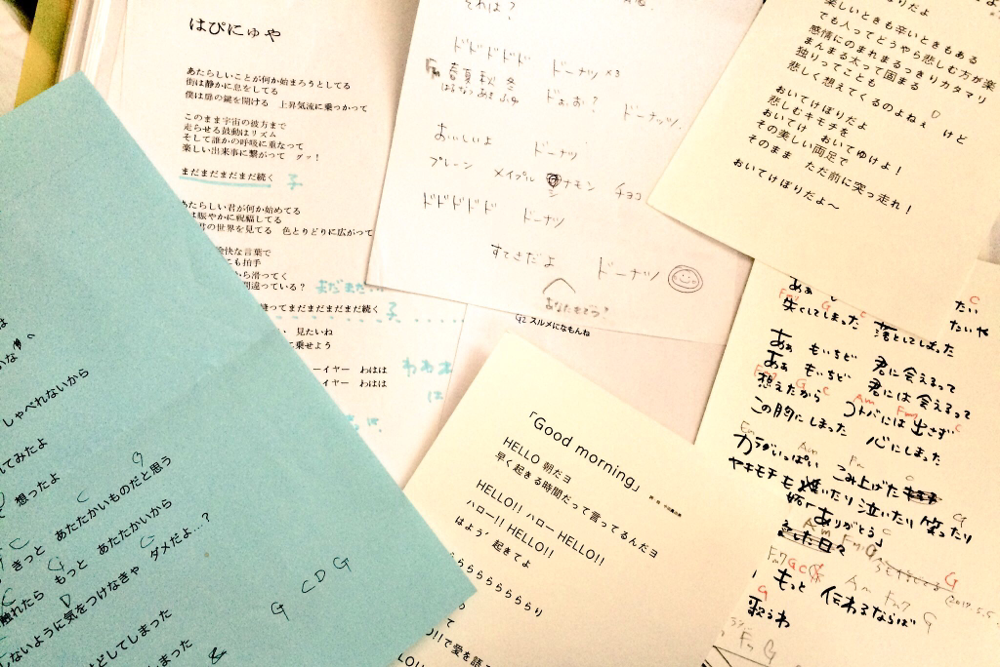 はぴにゅや
あたらしいことが何か始まろうとしてる
街は静かに息をしてる
僕は扉の鍵を開ける　上昇気流に乗っかって
このまま宇宙の彼方まで
走らせる鼓動はリズム
そして誰かの呼吸に重なって
楽しい出来事に繋がって　グッ！
まだまだまだまだ続く　子
あたらしい君が何か始めてる
は賑やかに祝福してる
君の世界を見てる　色とりどりに広がって
愉快な言葉で
にも拍手
から滑ってく
間違っている？
まってまだまだまだまだ続く　子
見たいね
に乗せよう
ーイヤー　わはは　わわは
イヤー　わはは　は
それは？
ドドドドド　ドーナツ×3
春夏秋冬　ドぉお？　ドーナッツ。
はるなつあきふゆ
おいしいよ　ドーナツ
プレーン　メイプル　シナモン　チョコ
ドドドドド　ドーナツ
すてきだよ　ドーナツ
あなたもどう？
G2 スルメになもんね
なりだよ
楽しいときも辛いときもある
でも人ってどうやら悲しむ方が楽
感情にのまれまるっきりカタマリ
まんまる太って固まる
独りってことも
悲しく想えてくるのよねぇ　けど
D
おいてけぼりだよ
悲しむキモチを
おいてけ　おいてゆけよ！
その美しい両足で
そのまま　ただ前に突っ走れ！
おいてけぼりだよ〜
いな
しゃべれないから
れてみたよ
想ったよ
C　G
きっと　あたたかいものだと思う
C　G　C
触れたら　もっと　あたたかいから
D
しないように気をつけなきゃ　ダメだよ‥？
G　C D G
けどしてしまった
しまった
「Good morning」
HELLO 朝だヨ
早く起きる時間だって言ってるんだヨ
HELLO!! ハロー HELLO!!
ハロー!! HELLO!!
はよう’起きてよ
らららららららり
って
O!!で愛を語
あぁ
C
たい
たいや
Fm7　G　C
失くしてしまった　落としてしまった
あぁ　もいちど　君に会えるって
あぁ　もいちど　君には会えるって
Fm7　G　C　Am　Fm7　C
想えたから　コトバには出さず
この胸にしまった　心にしまった
Em　Am　Fm　C
カラがいっぱい　こみ上げた
ヤキモチも　焼いたり泣いたり　笑ったり
G
「ありがとう」
Am　Fm7　G
Fm7 G C　Am　Fm7　G
もっと　伝わるならば
G
歌うわ
Fm7　G